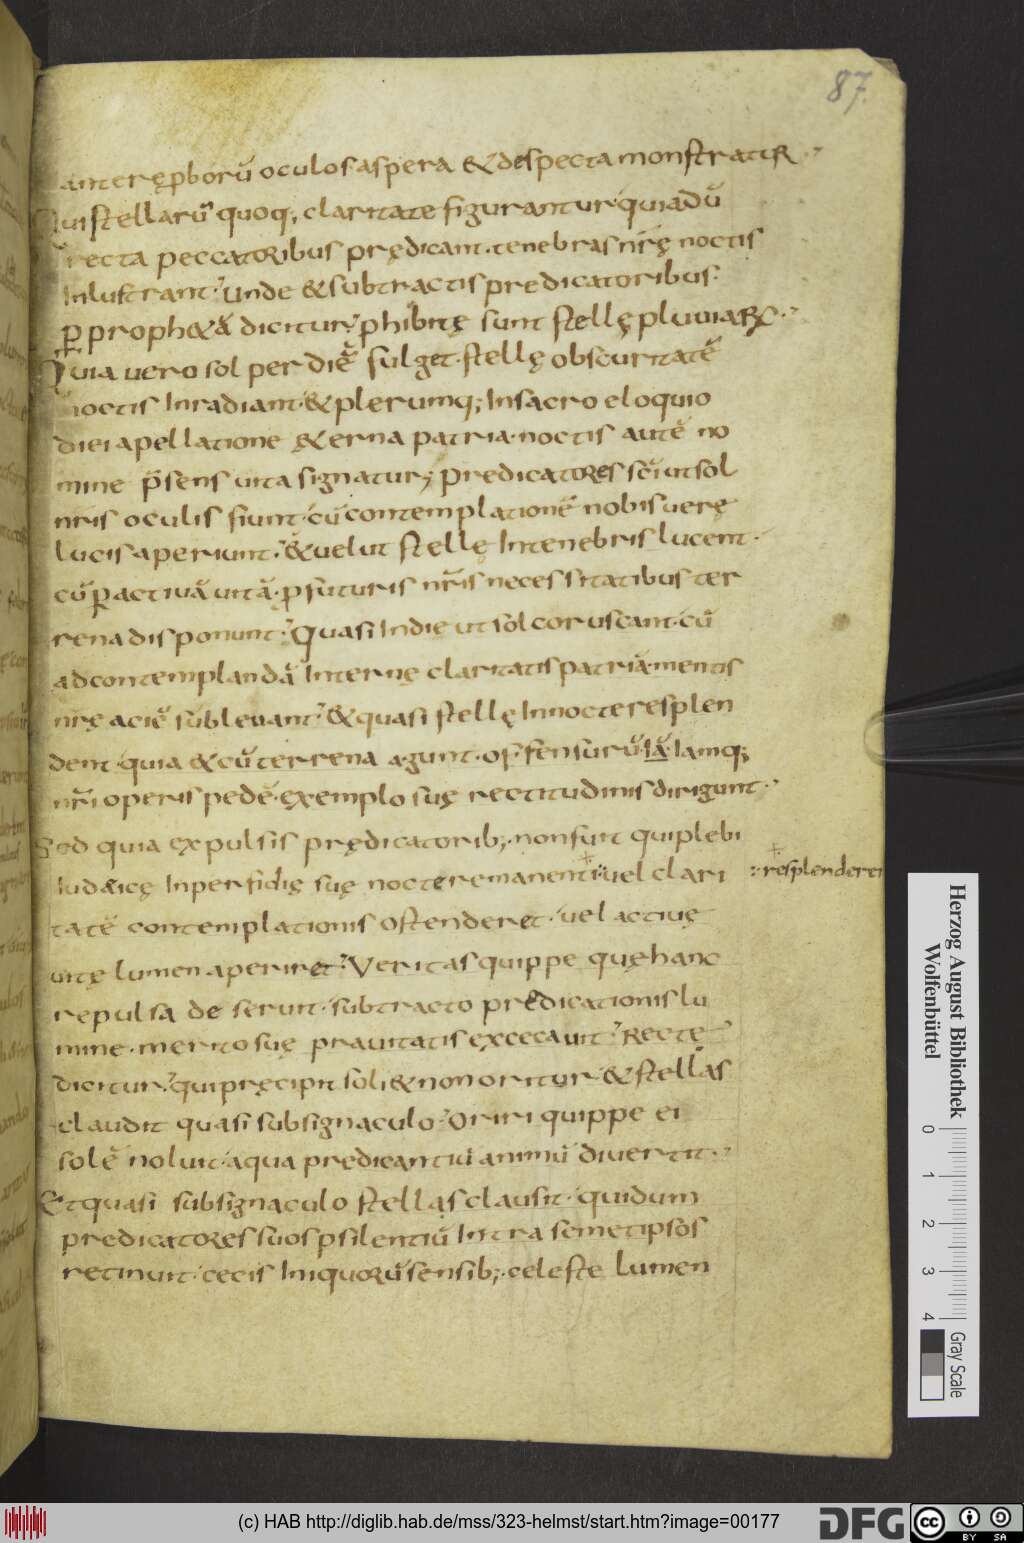 87
ante ręproborū oculos aspera & despecta monstratur.
Qui stellarū quoq; claritate figurantur. quia dū
recta peccatoribus prędicant. tenebras nr̄ę noctis
Inlustrant. Unde & subtractis predicatoribus.
ꝑ proph&ā dicitur. phibitę sunt stellę pluuiarū.
Quia uero sol per diē fulget. stellę obscuritatē
noctis Inradiant. & plerumq; In sacro eloquio
diei apellatione ęterna patria. noctis autē no
mine p̄sens uita signatur; predicatores sc̄i ut sol
nr̄is oculis fiunt. cū contemplationē nobis uerę
lucis aperiunt. & uelut stellę In tenebris lucent.
cū ꝑ actiuā uitā. p futuris nr̄is necessitatibus ter
rena disponunt. Quasi In die ut sol coruscant. cū
ad contemplandā Internę claritatis patriā. mentis
nr̄ę aciē subleuant. & quasi stellę In nocte resplen
dent. quia & cū terrena agunt. offensurū iā iamq;
nr̄i operis pedē. exemplo suę rectitudinis dirigunt.
Sed quia expulsis prędicatorib; non fuit qui plebi
Iudaicę In perfidię suę nocte remanenti uel clari
resplenderet
tatē contemplationis ostenderet. uel actiuę
uitę lumen aperiret. Veritas quippe quę hanc
repulsa deseruit. subtracto predicationis lu
mine. merito suę prauitatis excecauit. Recte
dicitur. qui pręcipit soli & non oritur. & stellas
claudit quasi sub signaculo. Oriri quippe ei
solē noluit. a qua predicantiū animū diuertit.
Et quasi sub signaculo stellas clausit. qui dum
predicatores suos p silentiū Intra semetipsos
retinuit. cecis Iniquorū sensib; celeste lumen
Herzog August Bibliothek
Wolfenbüttel
0 1 2 3 4
Gray Scale
(c) HAB http://diglib.hab.de/mss/323-helmst/start.htm?image=00177
DFG
cc BY SA